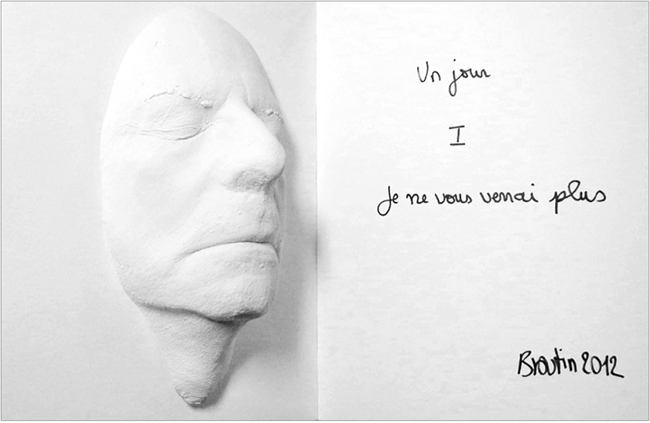 Un jour
I
Je ne vous verrai plus
Broutin 2012